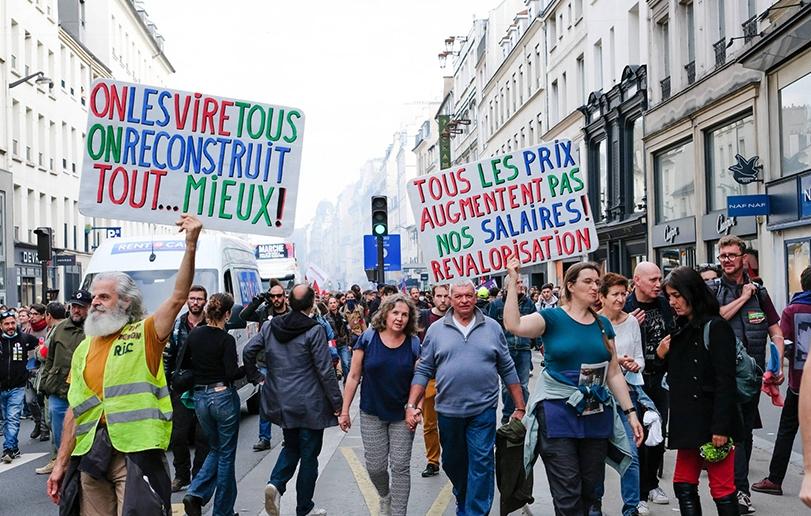 ONLESVIRETOUS
ONRECONSTRUIT
TOUT... MIEUX!
TOUS LES PRIX
AUGMENTENT, PAS
NOS SALAIRES!
REVALORISATION
RENT
MARCHE
NAF NAF
RIC